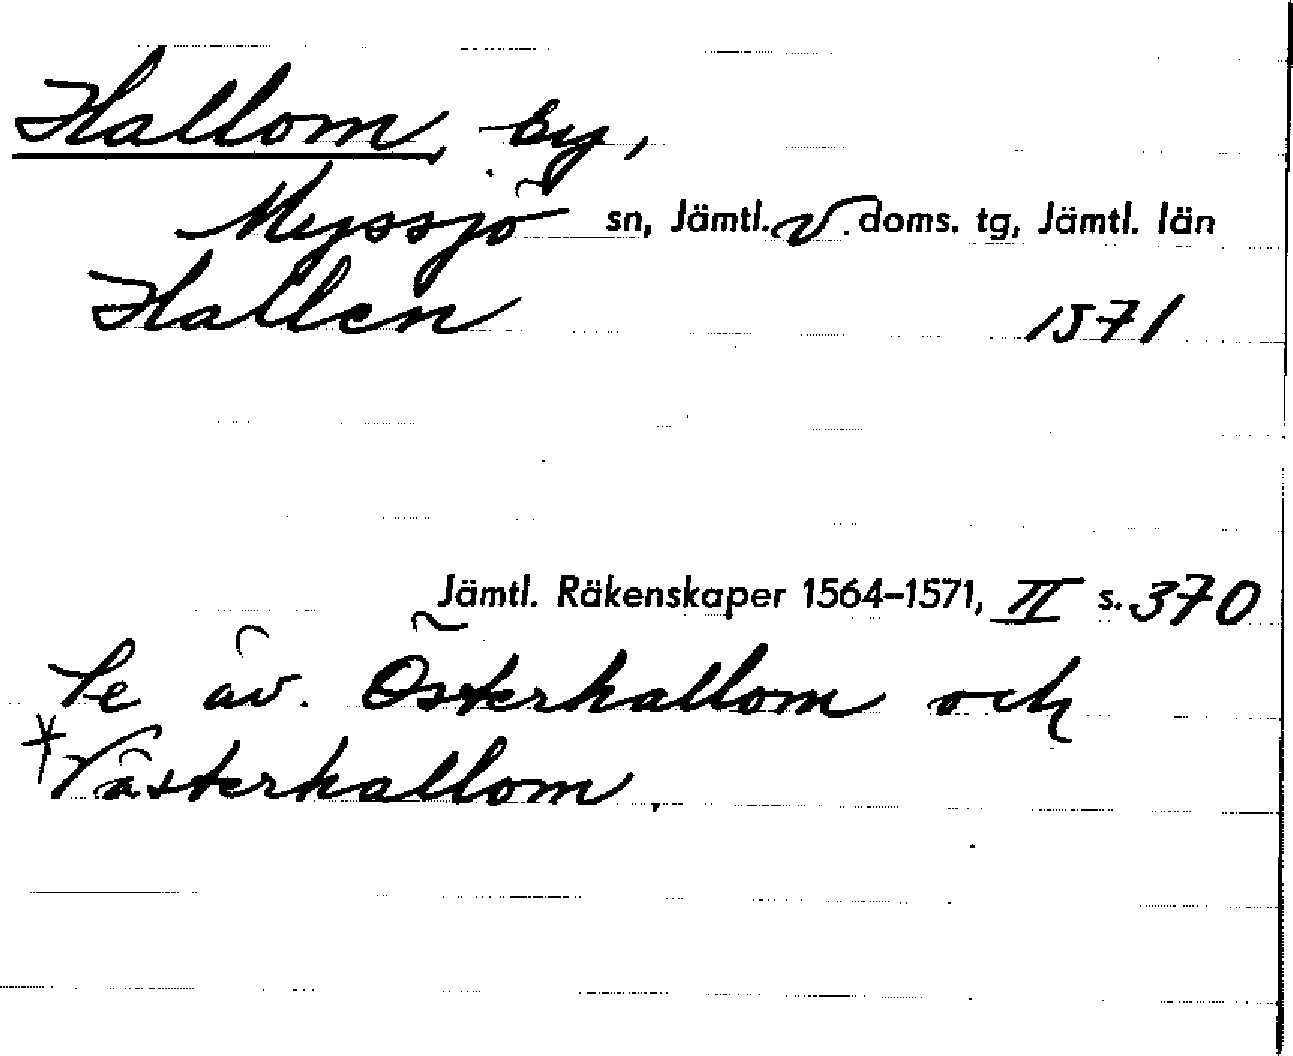 Hallom, by,
Myssjö sn, Jämtl. v. doms. tg, Jämtl. län
Hallen 1571
Jämtl. Räkenskaper 1564–1571, II s. 370
Se äv. Österhallom och
*Västerhallom.